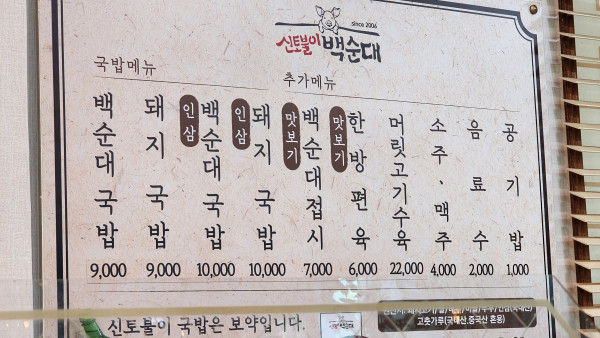 since 2006
신토불이 백순대
국밥메뉴
추가메뉴
백순대국밥
돼지국밥
인삼 백순대국밥
인삼 돼지국밥
맛보기 백순대접시
맛보기 한방편육
머릿고기수육
소주·맥주
음료수
공기밥
9,000 9,000 10,000 10,000 7,000 6,000 22,000 4,000 2,000 1,000
신토불이 국밥은 보약입니다.
고춧가루(국내산,중국산 혼용)